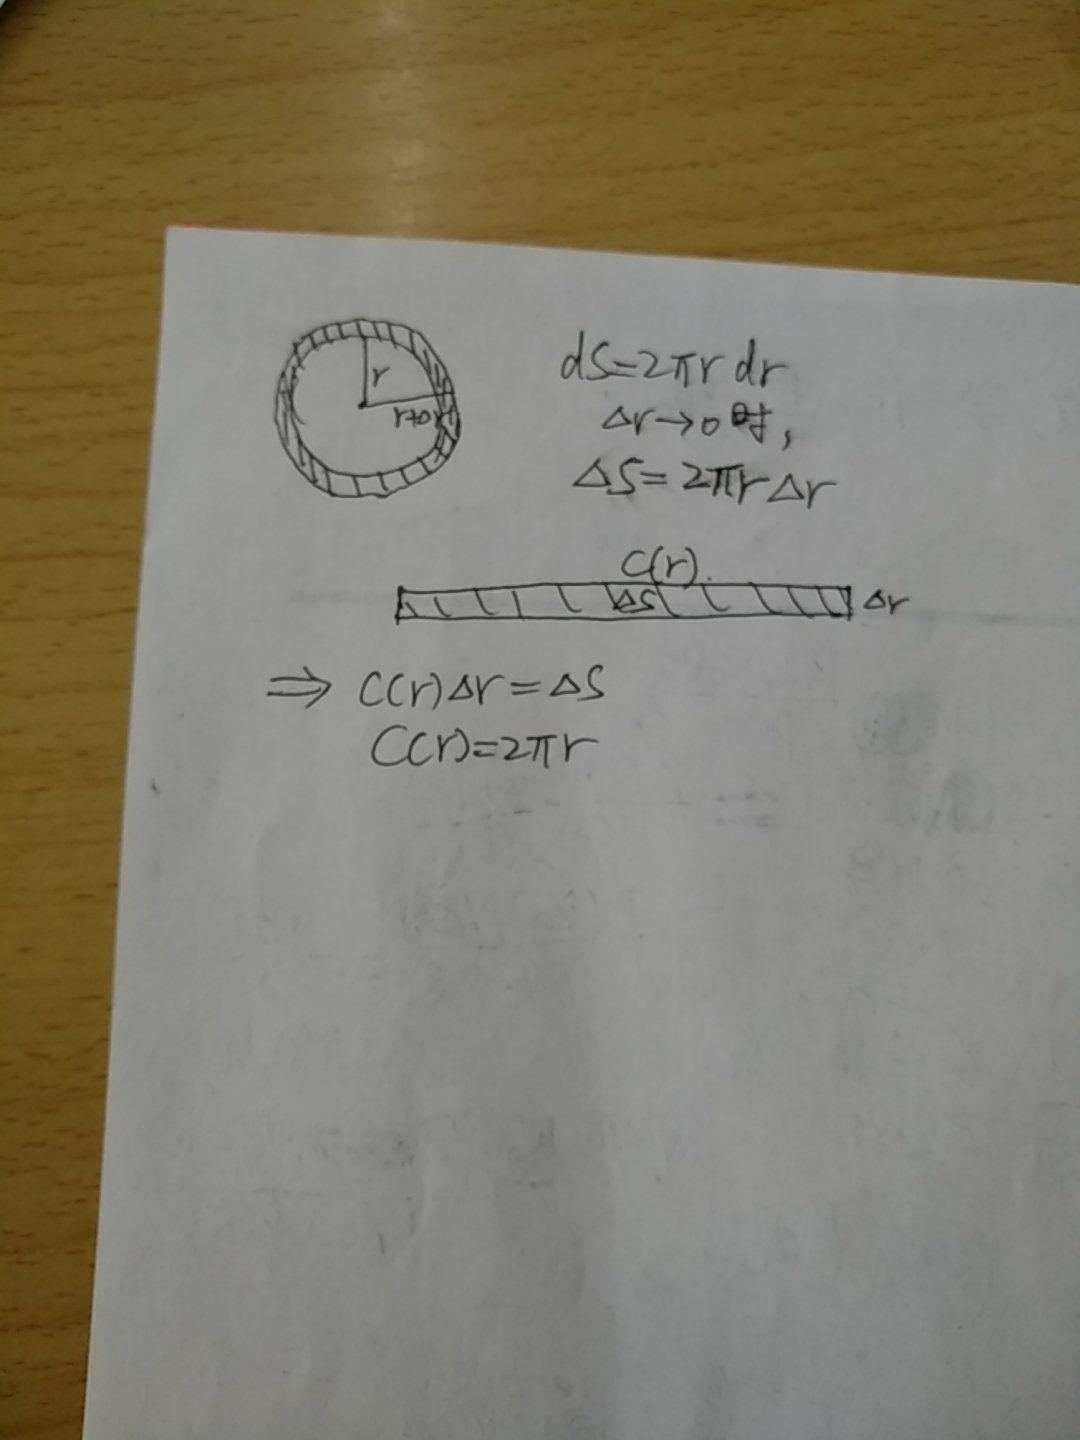 r
r+Δr
dS=2πr dr
Δr→0时,
ΔS=2πrΔr
C(r).
ΔS
Δr
⇒ C(r)Δr=ΔS
C(r)=2πr